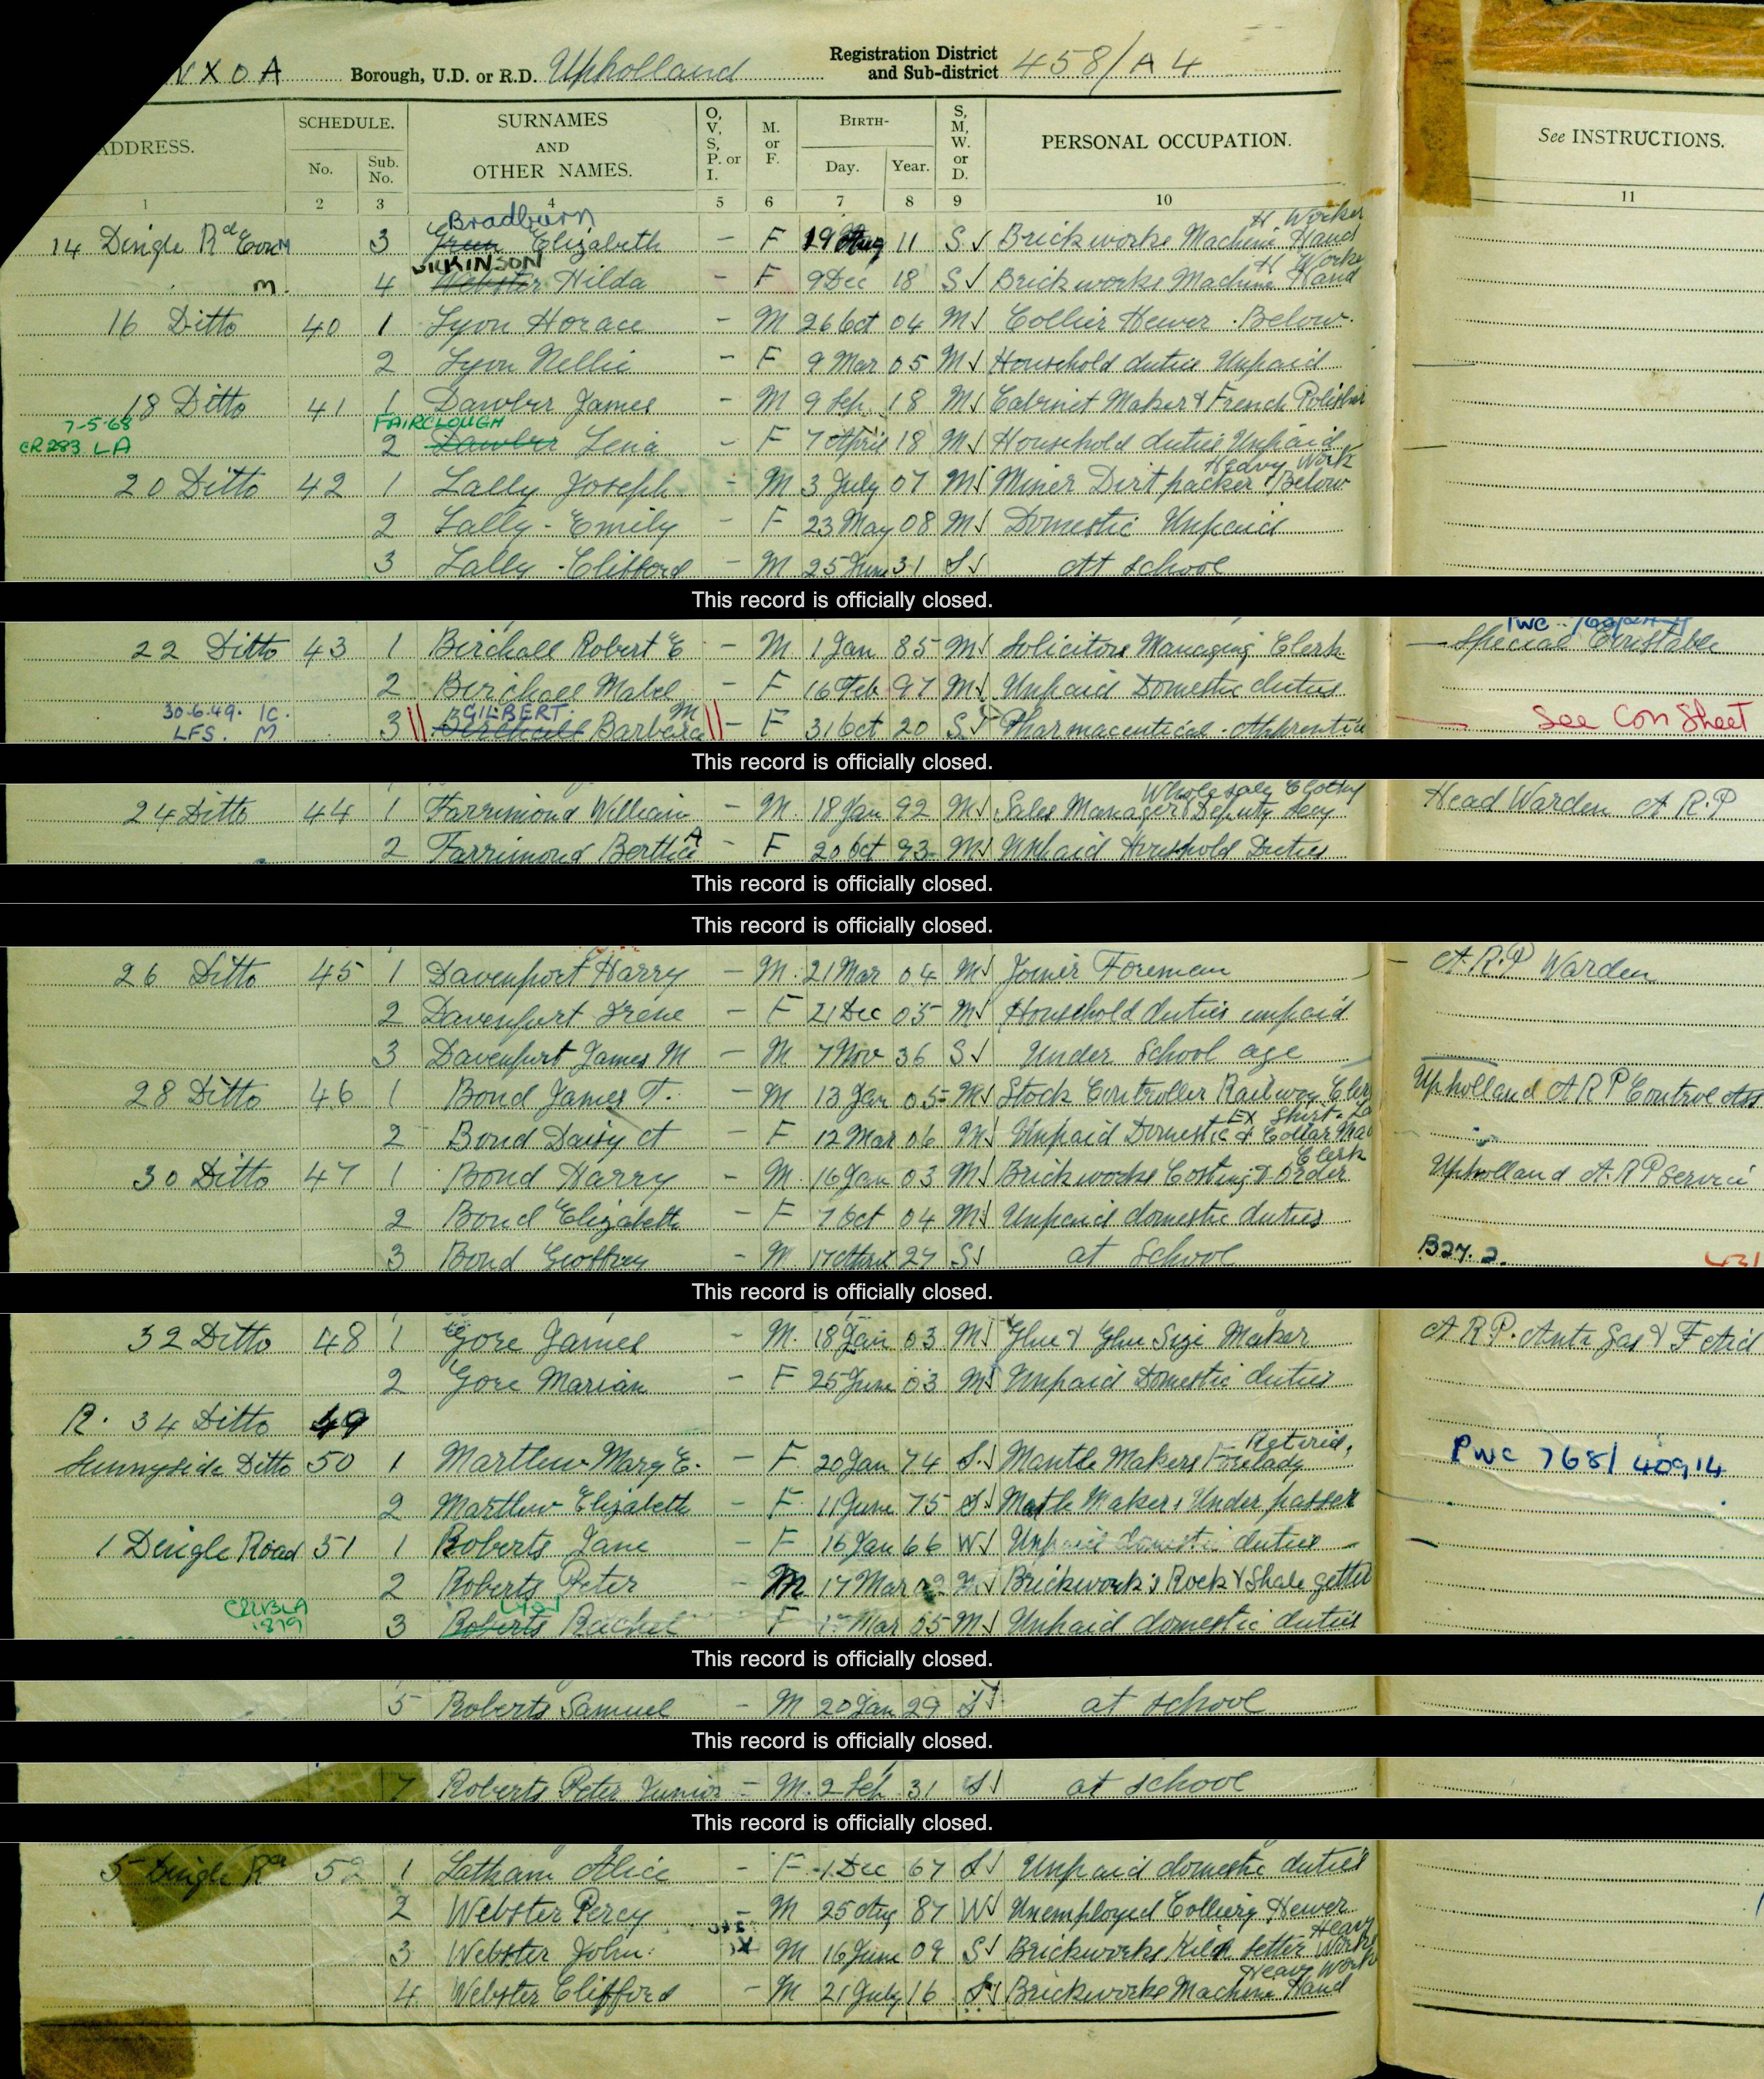 N X O A Borough, U.D. or R.D. Upholland Registration District and Sub-district 458/A 4
ADDRESS. SCHEDULE. No. Sub. No. SURNAMES AND OTHER NAMES. O, V, S, P. or I. M. or F. BIRTH- Day. Year. S, M, W. or D. PERSONAL OCCUPATION. See INSTRUCTIONS.
1 2 3 4 5 6 7 8 9 10 11
Bradburn H Worker
14 Dingle Rd Con M 3 Green Elizabeth – F 19 Aug 11 S √ Brickworks Machine Hand
WILKINSON H Worke
M. 4 Webster Hilda – F 9 Dec 18 S √ Brickworks Machine Hand
16 Ditto 40 1 Lyon Horace – M 26 Oct 04 M √ Collier Hewer . Below.
2 Lyon Nellie – F 9 Mar 05 M √ Household duties Unpaid
18 Ditto 41 1 Dawber James – M 9 Sep. 18 M √ Cabinet Maker & French Polisher
7-5-68 FAIRCLOUGH
CR 283 LA 2 Dawber Lena – F 7 April 18 M √ Household duties Unpaid
Heavy Work
20 Ditto 42 1 Lally Joseph – M 3 July 07 M √ Miner Dirt packer Below
2 Lally - Emily – F 23 May 08 M √ Domestic Unpaid
3 Lally - Clifford – M 25 June 31 S √ At School
This record is officially closed.
22 Ditto 43 1 Birchall Robert E – M 1 Jan 85 M √ Solicitors Managing Clerk Special Constable
2 Birchall Mabel – F 16 Feb 97 M √ Unpaid Domestic duties
30-6-49. IC. GILBERT. M
LFS. M 3 Birchall Barbara – F 31 Oct 20 S √ Pharmaceutical . Apprentice See Con Sheet
This record is officially closed.
Wholesale Clothg
24 Ditto 44 1 Farrimond William – M. 18 Jan 92 M √ Sales Manager & Deputy Secy Head Warden A R.P
2 Farrimond Bertha A – F 20 Oct 93 M √ Unpaid Household Duties
This record is officially closed.
This record is officially closed.
26 Ditto 45 1 Davenport Harry – M. 21 Mar 04 M √ Joiner Foreman A.R.P Warden
2 Davenport Irene – F 21 Dec 05 M √ Household duties unpaid
3 Davenport James M – M 7 Nov 36 S √ Under School age
28 Ditto 46 1 Bond James T. – M 13 Jan 05 M √ Stock Controller Railway Cler Upholland A R P Control
EX Shirt
2 Bond Daisy A – F 12 Mar 06 M √ Unpaid Domestic & Collar Ma
Clerk
30 Ditto 47 1 Bond Harry – M. 16 Jan 03 M √ Brickworks Costing & Order Upholland A.R P Service
2 Bond Elizabeth – F 7 Oct 04 M √ Unpaid domestic duties
3 Bond Geoffrey – M. 17 April 27 S √ at School B27. 2.
This record is officially closed.
32 Ditto 48 1 Gore James – M. 18 Jan 03 M √ Glue & Glue Size Maker A.R.P. Anti Gas & F Aid
2 Gore Marian – F 25 June 03 M √ Unpaid Domestic duties
R. 34 Ditto 49
Retired,
Sunnyside Ditto 50 1 Martlew Mary E. – F. 20 Jan 74 S. √ Mantle Makers Forelady PWC 768/40914
2 Martlew Elizabeth – F. 11 June 75 S √ Matle Makers Under passer
1 Dingle Road 51 1 Roberts Jane – F 16 Jan 66 W √ Unpaid domestic duties
2 Roberts Peter – M 17 Mar 02 M √ Brickwork's Rock & Shale getter
LYON
3 Roberts Rachel F Mar 05 M √ Unpaid domestic duties
This record is officially closed.
5 Roberts Samuel – M 20 Jan 29 S √ at school
This record is officially closed.
7 Roberts Peter Junior – M. 2 Feb 31 S √ at school
This record is officially closed.
5 Dingle Rd 52 1 Latham Alice – F 1 Dec 67 S √ Unpaid domestic duties
2 Webster Percy – M 25 Aug 87 W √ Unemployed Colliery Hewer
Heavy
3 Webster John. M 16 June 09 S √ Brickworks Kiln Setter Work
Heavy Work
4 Webster Clifford – M 21 July 16 S √ Brickworks Machine Hand